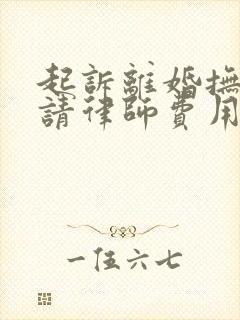 起訴離婚撫
請律師費用
一伍六七